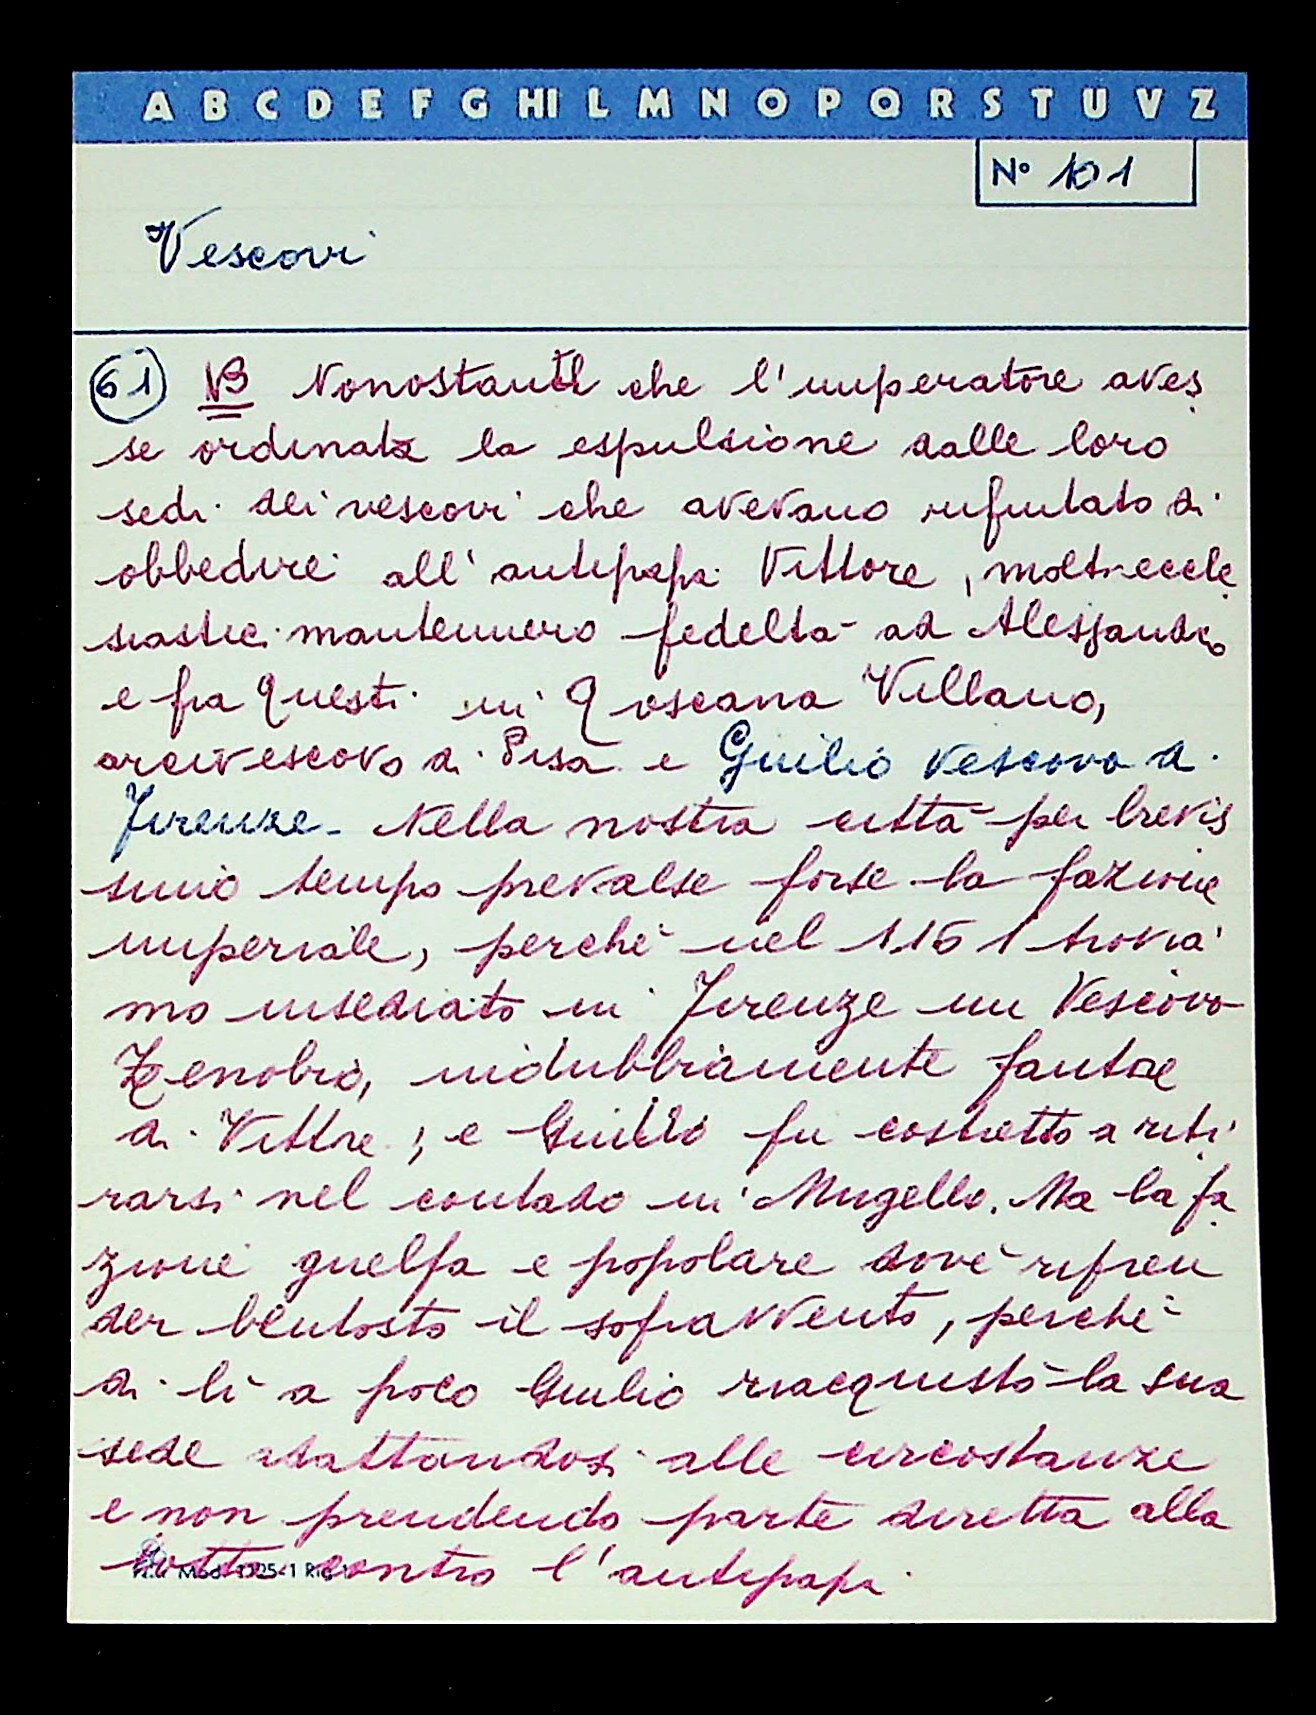 A B C D E F G HI L M N O P Q R S T U V Z
N° 101
Vescovi
61 NB Nonostante che l'imperatore aves
se ordinata la espulsione dalle loro
sedi dei vescovi che avevano rifiutato di
obbedire all'antipapa Vittore, molti eccle
siastici mantennero fedeltà ad Alessandro
e fra questi in Toscana Villano,
arcivescovo di Pisa e Giulio vescovo di
Firenze. Nella nostra città per brevis
simo tempo prevalse forse la fazione
imperiale, perchè nel 1161 trovia
mo insediato in Firenze un Vescovo
Zenobio, indubbiamente fautore
di Vittore; e Giulio fu costretto a riti
rarsi nel contado in Mugello. Ma la fa
zione guelfa e popolare dovè ripren
der bentosto il sopravvento, perchè
di lì a poco Giulio riacquistò la sua
sede adattandosi alle circostanze
e non prendendo parte diretta alla
lotta contro l'antipapa.